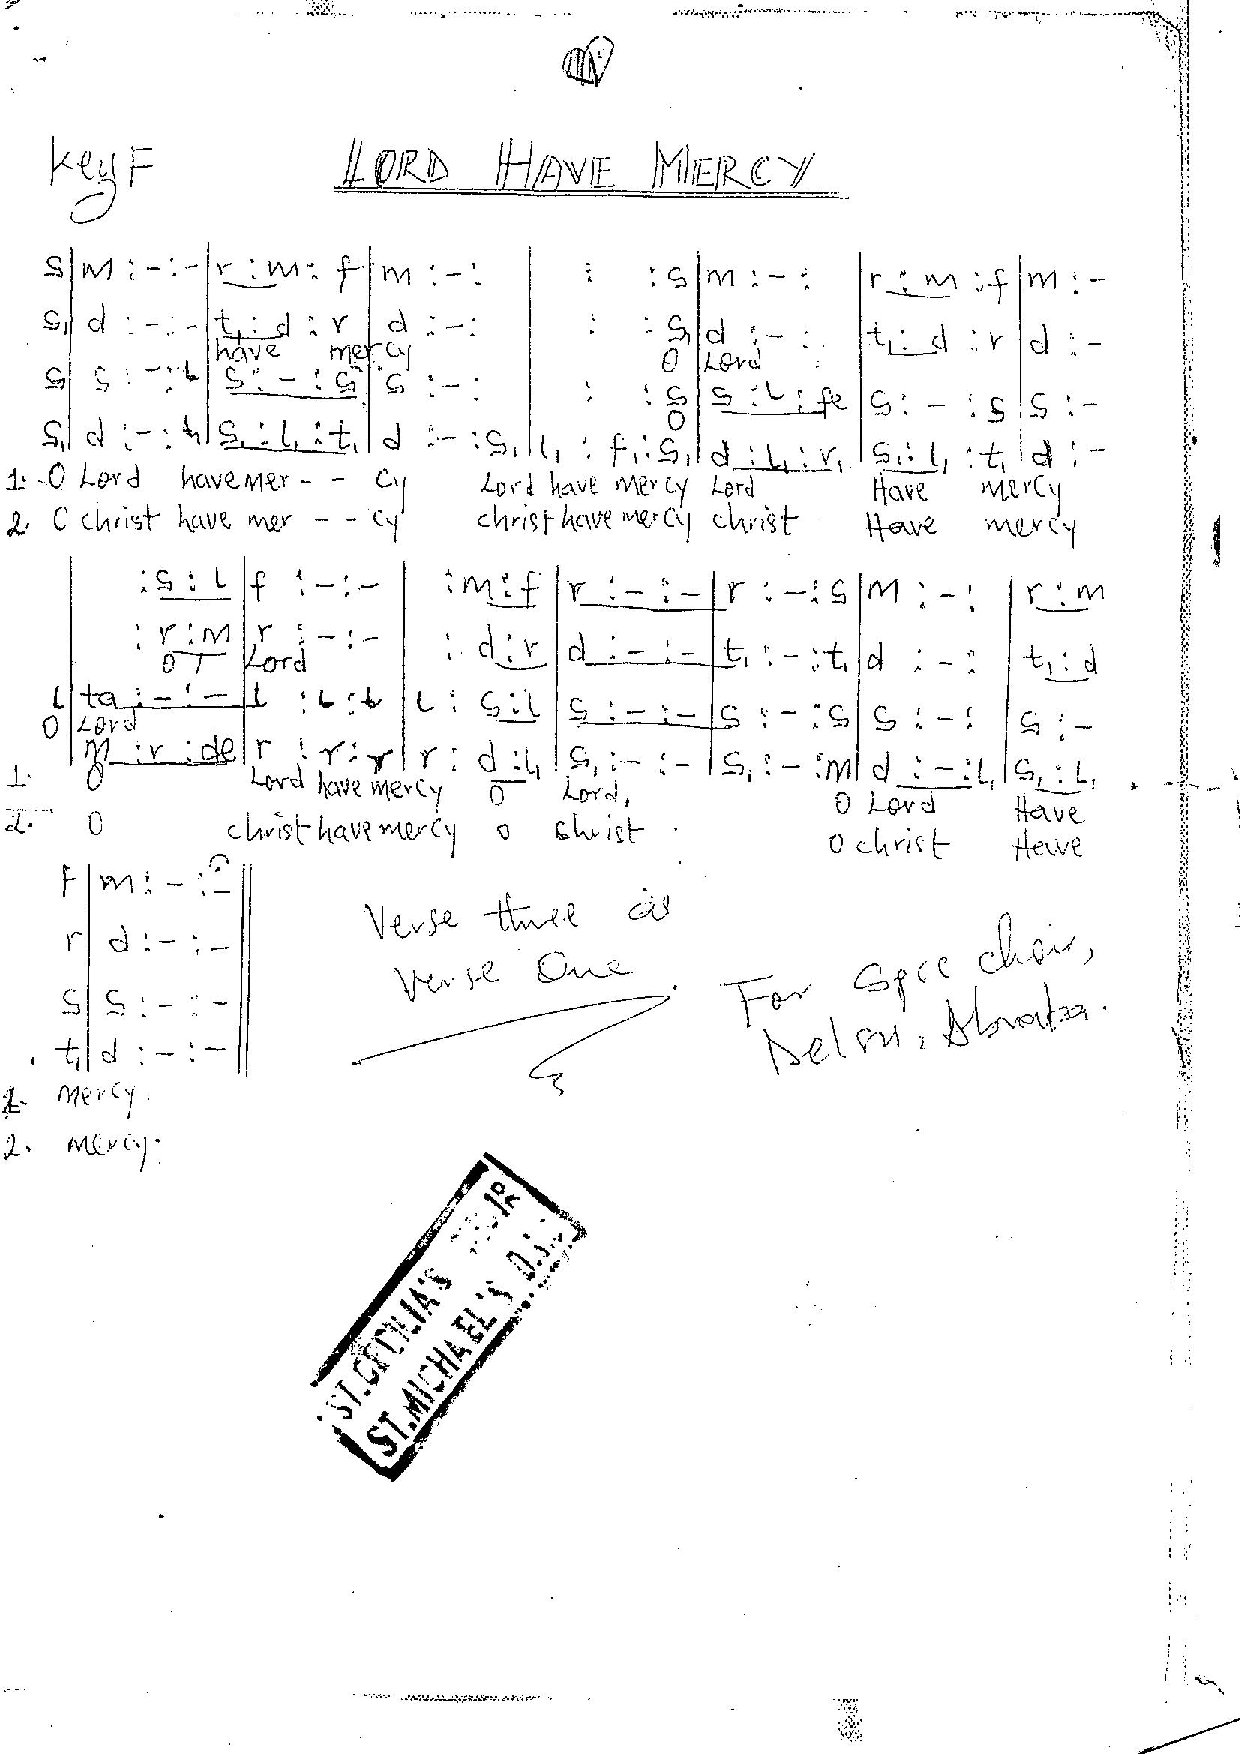 key F
LORD HAVE MERCY
s|m :-:-|r :m: f|m :-: | : :s|m :-: |r :m :f|m :-
s₁|d :-:-|t₁:d : r|d :-: | : :s₁|d :-: |t₁:d :r|d :-
have mercy O Lord
s|s :-:l|s :-:s|s :-: | : :s|s :l :fe|s :- :s|s :-
O
s₁|d :-:l₁|s₁:l₁:t₁|d :-:s₁|l₁ :f₁:s₁|d :l₁:r₁|s₁:l₁ :t₁|d :-
1. O Lord have mer - - cy Lord have mercy Lord Have mercy
2. O christ have mer - - cy christ have mercy christ Have mercy
| :s:l|f :-:-| :m:f|r :-:-|r :-:s|m :-: |r :m
| :r:m|r :-:-| :d:r|d :-:-|t₁ :-:t₁|d :-: |t₁:d
O Lord
l|ta:-:-|l :l:l|l :s:l|s :-:-|s :-:s|s :-: |s :-
O Lord
|m :r :de|r :r:r|r :d:l₁|s₁:-:-|s₁:-:m|d :-:l₁|s₁:l₁
1. O Lord have mercy O Lord, O Lord Have
2. O christ have mercy o christ O christ Have
f|m :-:-||
r|d :-:-||
s|s :-:-||
t₁|d :-:-||
1. mercy.
2. mercy.
Verse three as
Verse One
For Spcc choir,
Delsu, Abraka.
ST.CECILIA'S
ST.MICHAEL'S